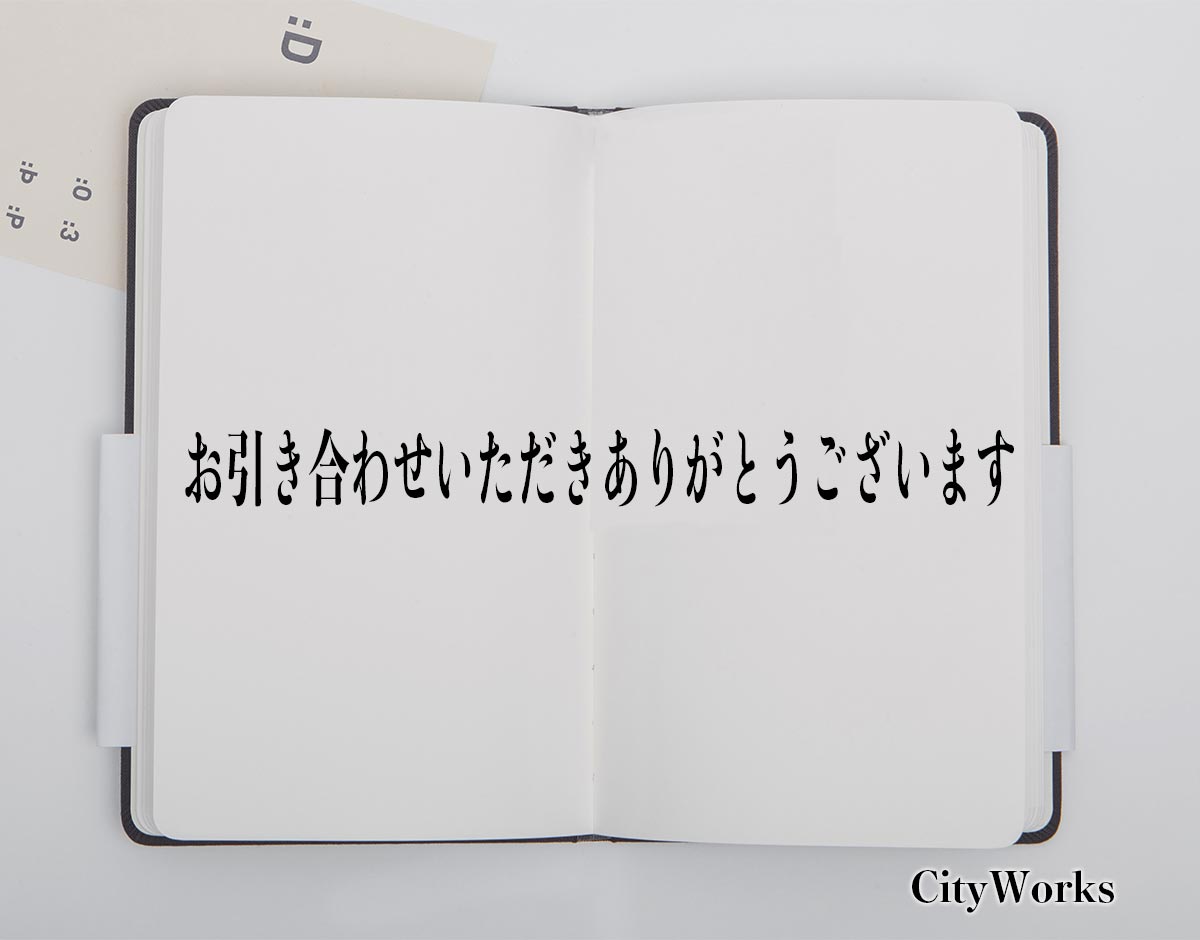 :D
:P :O
:P :3
お引き合わせいただきありがとうございます
CityWorks